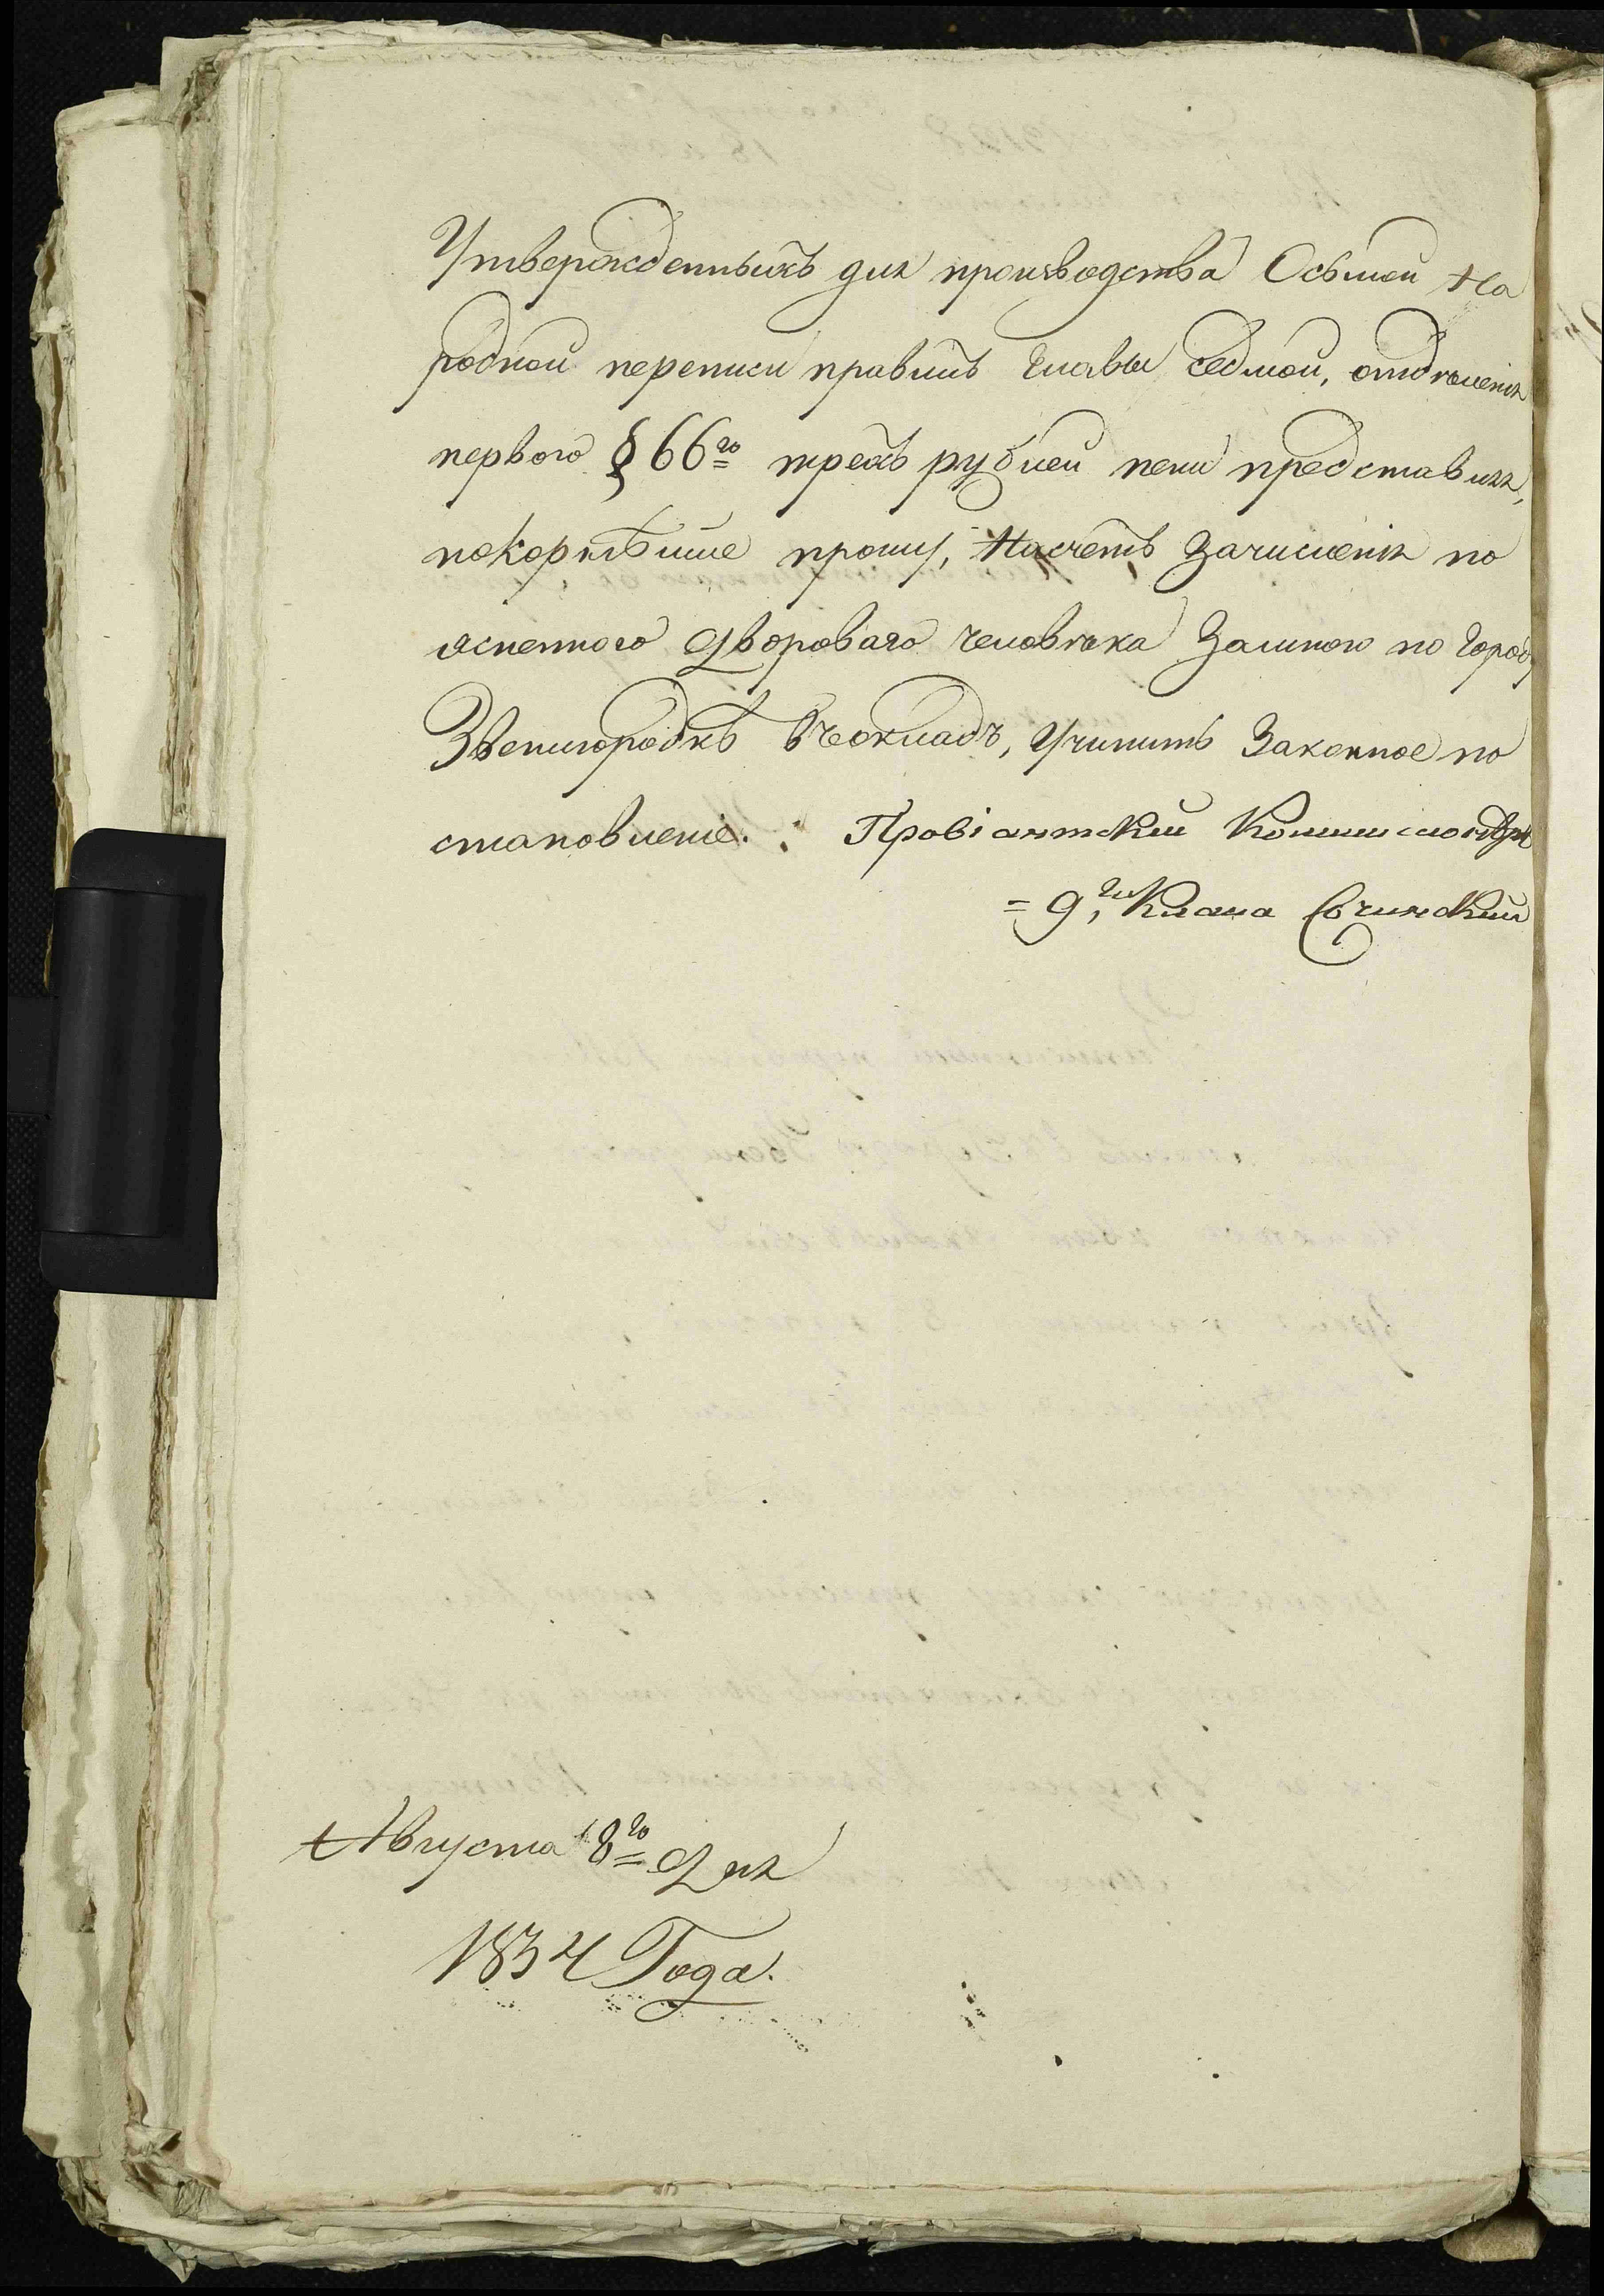 Утвержденныхъ для производства Осьмой На
родной переписи правилъ Главы седмой, отдѣленія
первого § 66го трехъ рублей пени представляя,
покорнѣйше прошу, Насчетъ Зачисленія по
ясненного Дворового человѣка Замною по Городу
Звенигородкѣ вѣокладъ, Учинить Законное по
становленіе. Провіантскій Коммисіонеръ
= 9го Класа Сочинский
Августа 8го Дня
1834 Года.